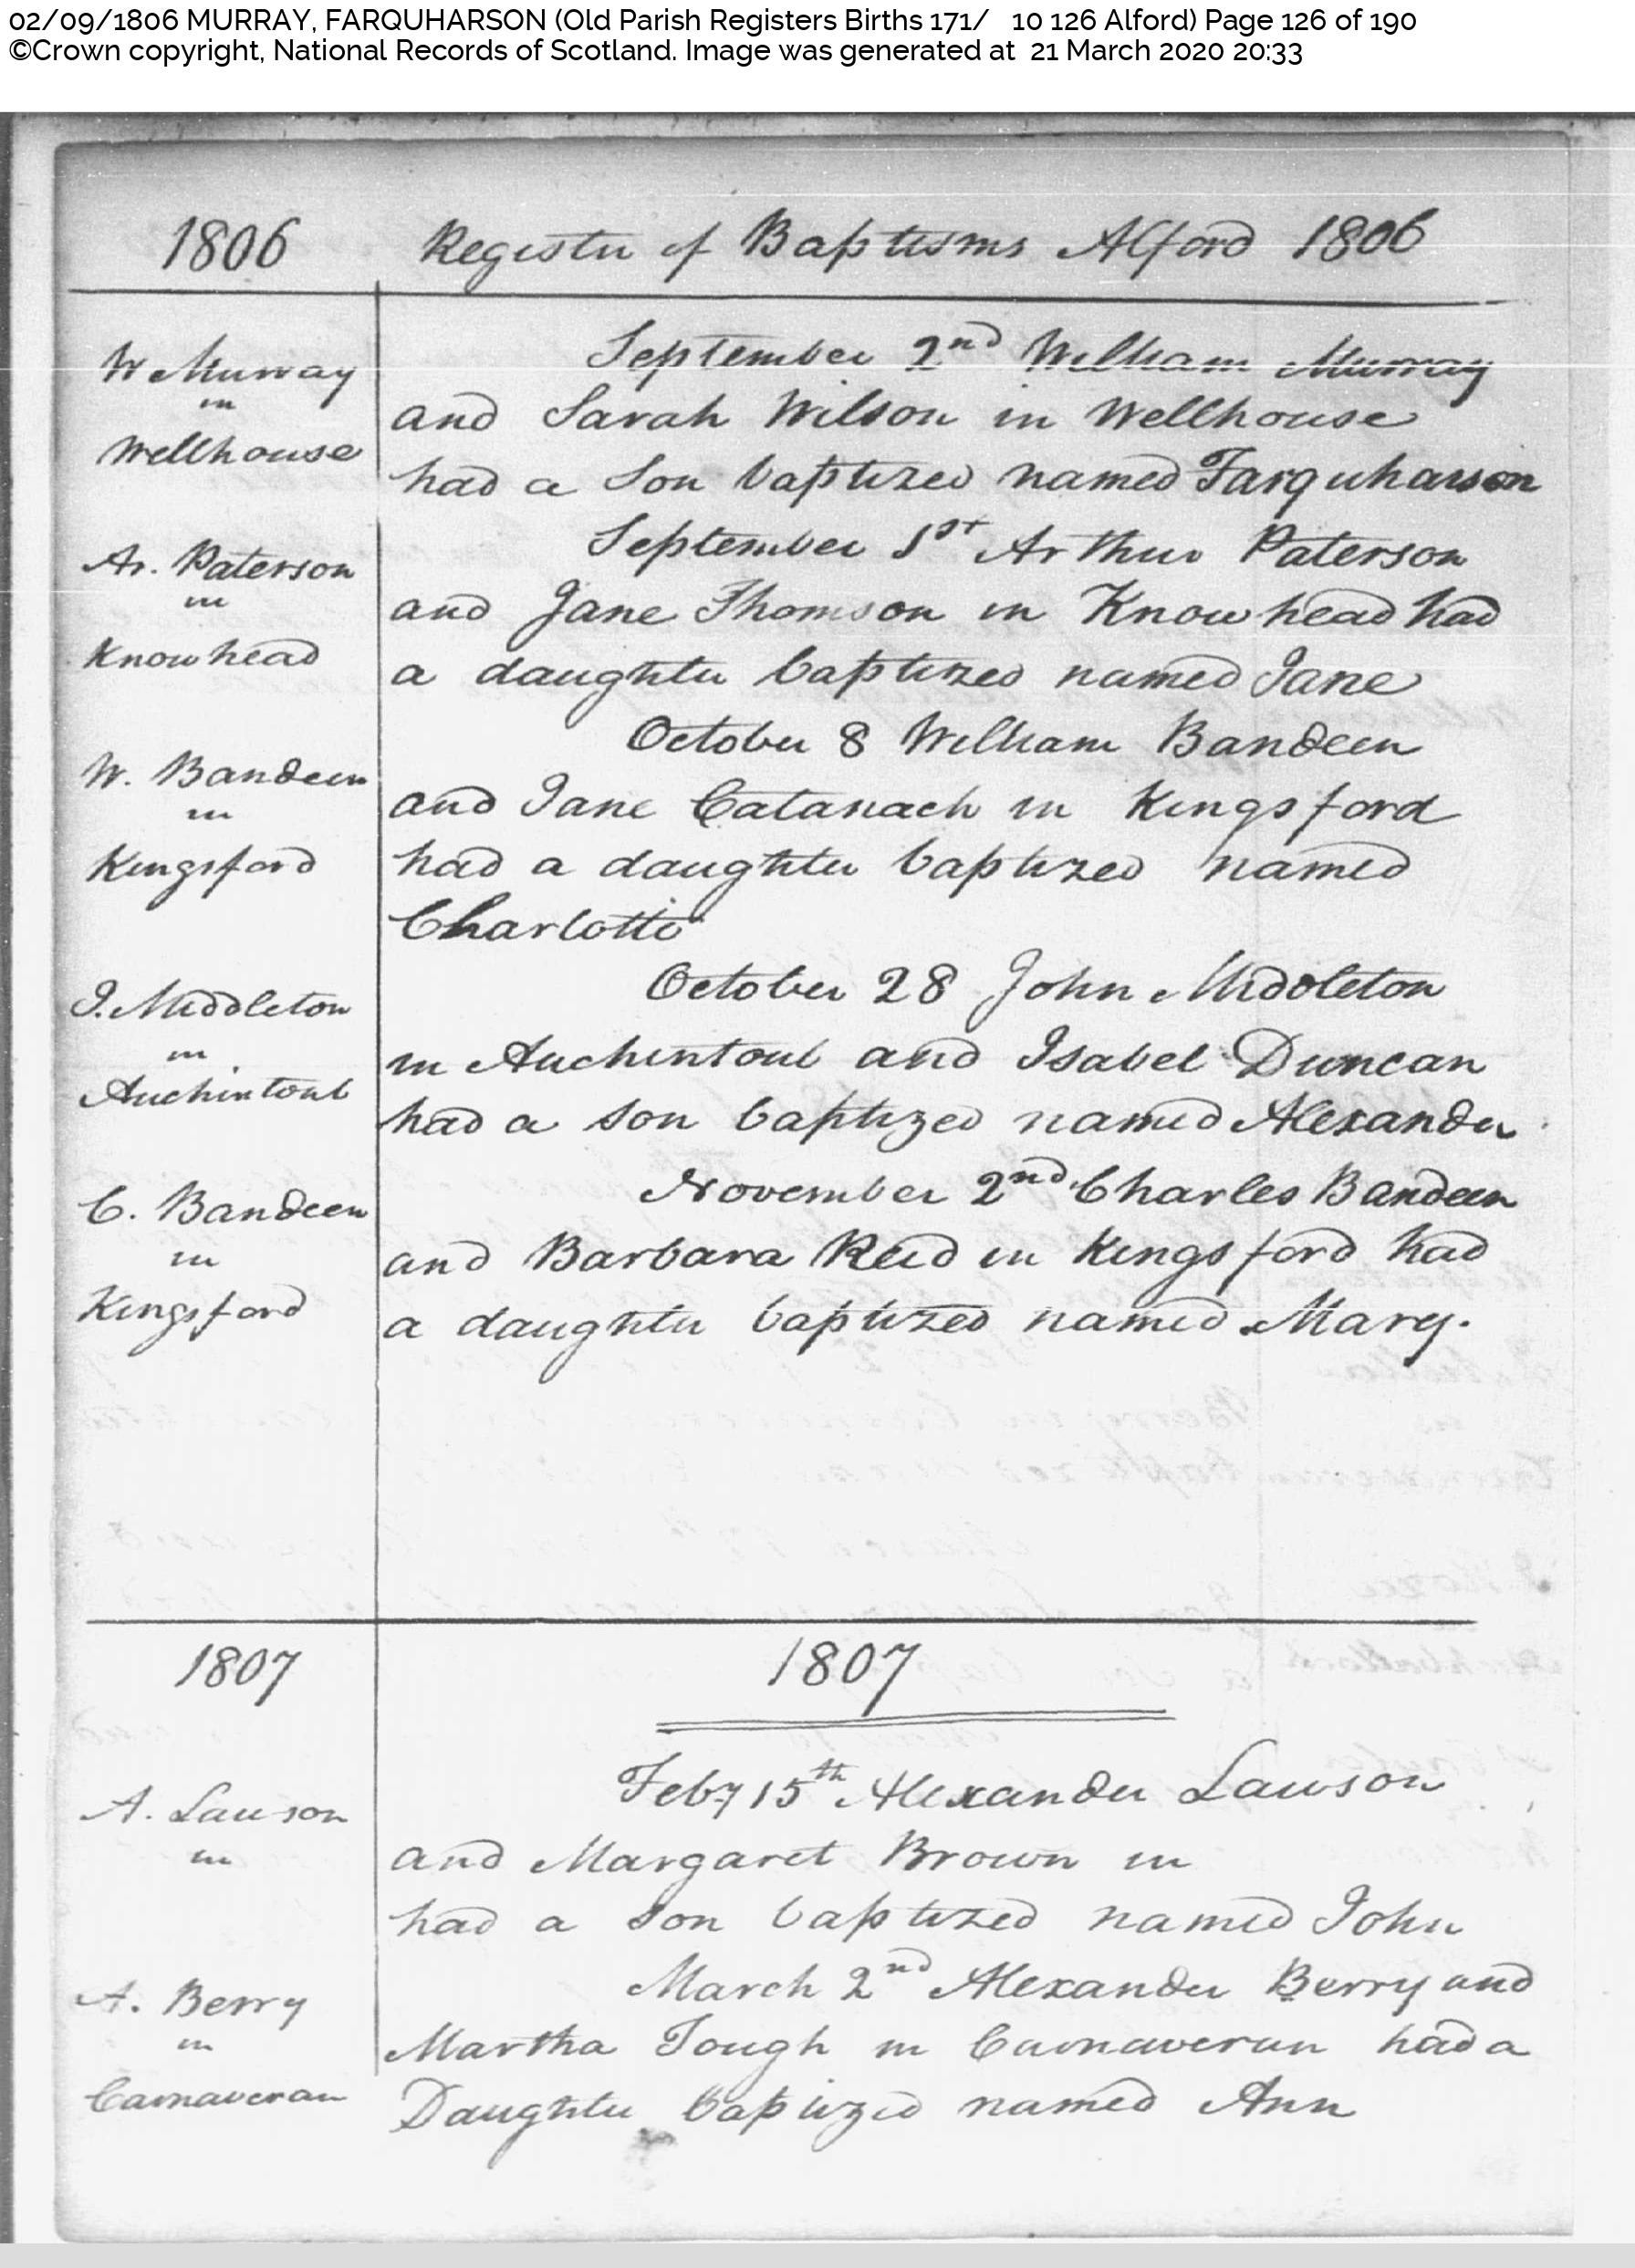 02/09/1806 MURRAY, FARQUHARSON (Old Parish Registers Births 171/ 10 126 Alford) Page 126 of 190
©Crown copyright, National Records of Scotland. Image was generated at 21 March 2020 20:33
1806
Register of Baptisms Alford 1806
W Murray
in
Wellhouse
September 2nd William Murray
and Sarah Wilson in Wellhouse
had a Son baptized named Farquharson
Ar. Paterson
in
Knowhead
September 1st Arthur Paterson
and Jane Thomson in Knowhead had
a daughter baptized named Jane
W. Bandeen
in
Kingsford
October 8 William Bandeen
and Jane Catanach in Kingsford
had a daughter baptized named
Charlotte
J. Middleton
in
Auchintoul
October 28 John Middleton
in Auchintoul and Isabel Duncan
had a son baptized named Alexander
C. Bandeen
in
Kingsford
November 2nd Charles Bandeen
and Barbara Reid in Kingsford had
a daughter baptized named Mary.
1807
1807
A. Lawson
in
Feby 15th Alexander Lawson
and Margaret Brown in
had a Son baptized named John
A. Berry
in
Carnaveran
March 2nd Alexander Berry and
Martha Tough in Carnaveran had a
Daughter baptized named Ann